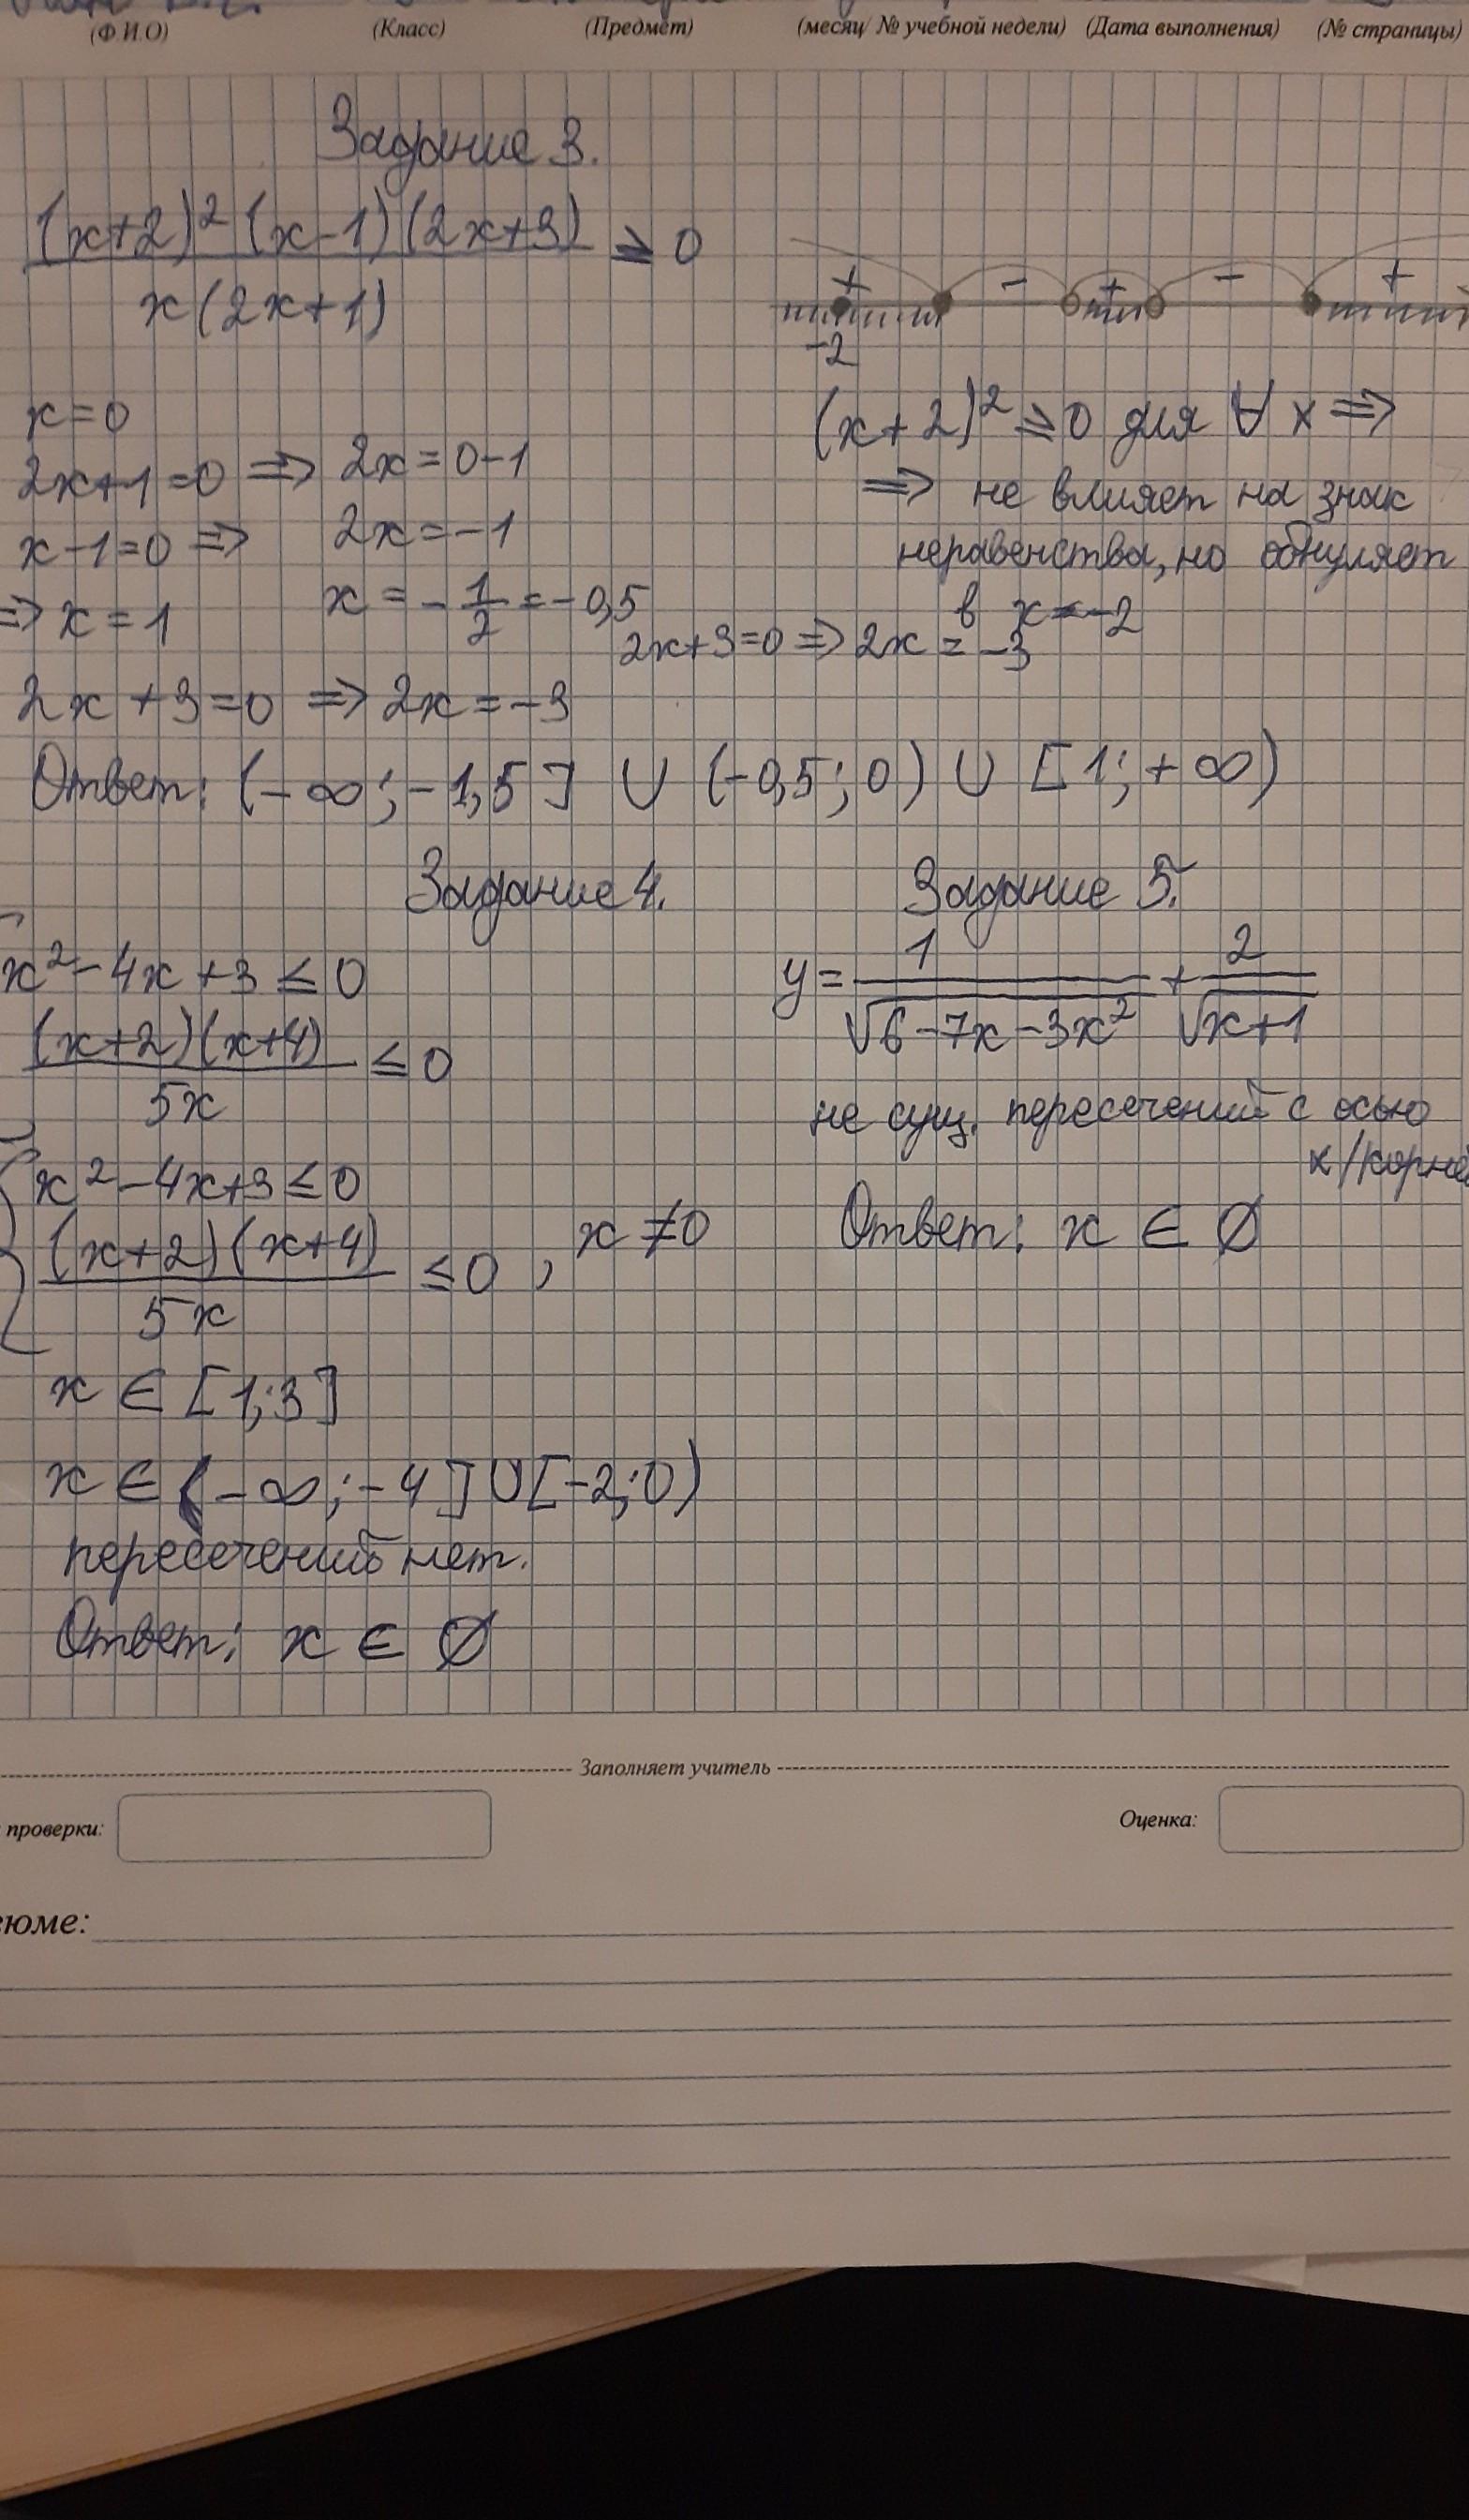 (Ф.И.О) (Класс) (Предмет) (месяц/ № учебной недели) (Дата выполнения) (№ страницы)
Задание 3.
(x+2)² (x-1)(2x+3) / x(2x+1) ≥ 0
+ - + - +
-2
x=0
2x+1=0 => 2x=0-1
x-1=0 => 2x=-1
=> x=1 x = -1/2 = -0,5
2x+3=0 => 2x=-3
(x+2)² ≥ 0 для ∀ x =>
=> не влияет на знак
неравенства, но обнуляет
в x=-2
2x+3=0 => 2x = -3
Ответ: (-∞; -1,5] ∪ (-0,5; 0) ∪ [1; +∞)
Задание 4.
x²-4x+3 ≤ 0
(x+2)(x+4) / 5x ≤ 0
x²-4x+3 ≤ 0
(x+2)(x+4) / 5x ≤ 0, x ≠ 0
x ∈ [1;3]
x ∈ (-∞; -4] ∪ [-2; 0)
пересечений нет.
Ответ: x ∈ ∅
Задание 5.
y = 1/√6-7x-3x² + 2/√x+1
не сущ. пересечений с осью
x/корне
Ответ: x ∈ ∅
Заполняет учитель
проверки: Оценка:
юме: